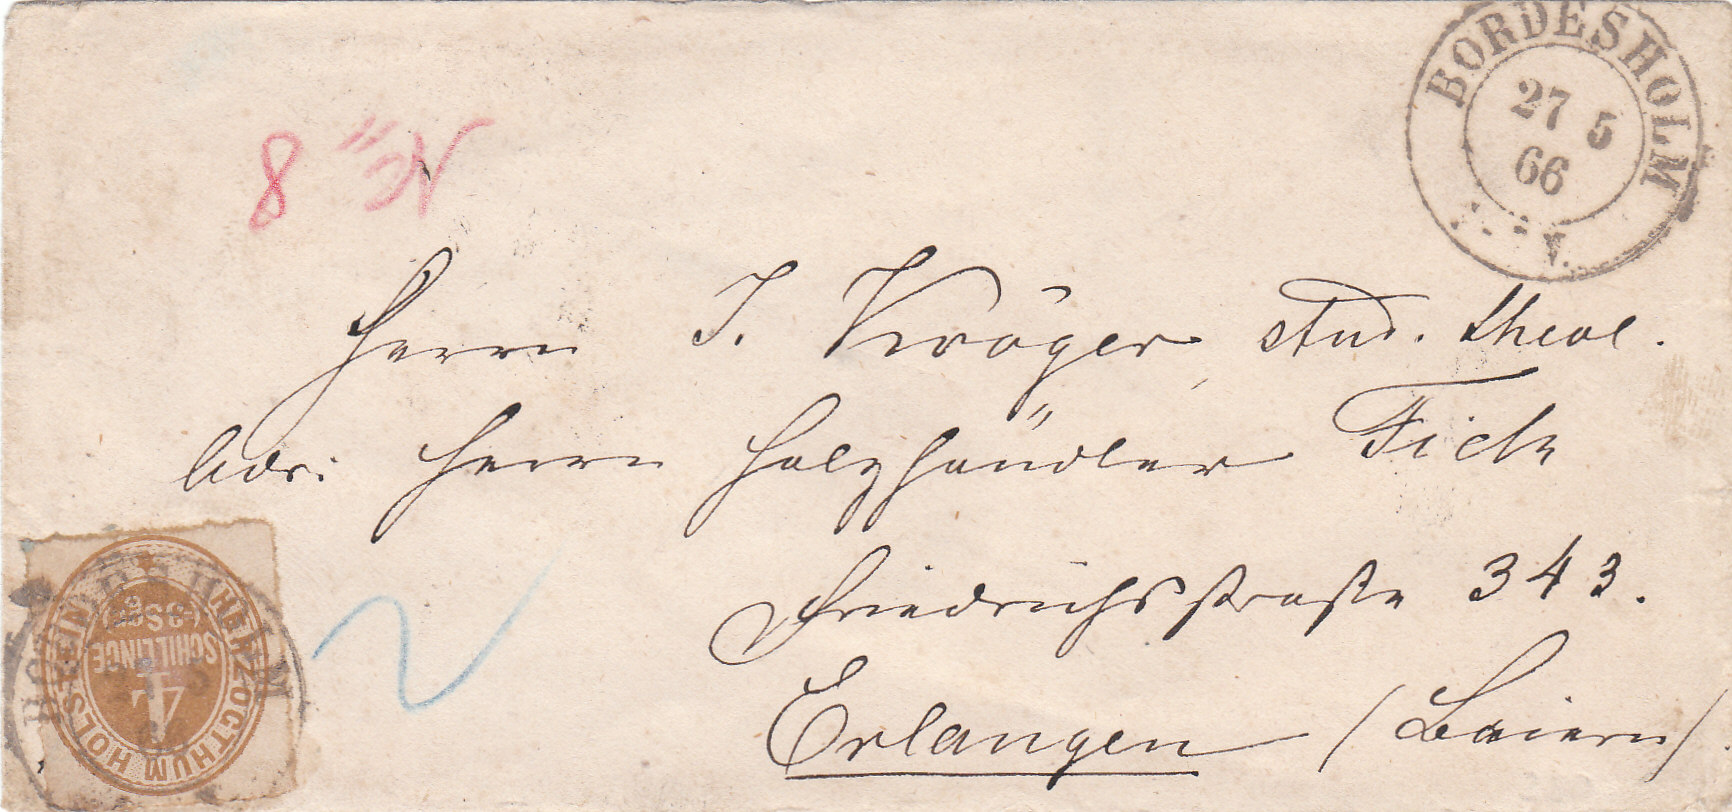 BORDESHOLM
27 5
66
8
Herrn J. Kröger stud. theol.
Adr: Herrn Holzhändler Fick
Friedrichsstraße 343.
Erlangen (Baiern)
HERZOGTHUM HOLSTEIN
4
SCHILLINGE
BORDESHOLM